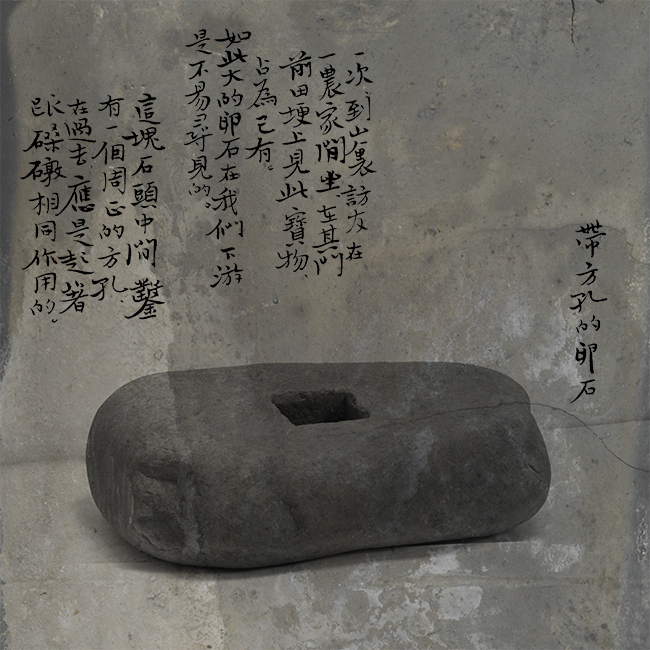 帶方孔的卵石
一次到山裏訪友在
一農家閒坐在其門
前田埂上見此寶物
占為己有。
如此大的卵石在我們下游
是不易尋見的。
這塊石頭中間鑿
有一個周正的方孔
在過去應是起著
跟磉礅相同作用的。